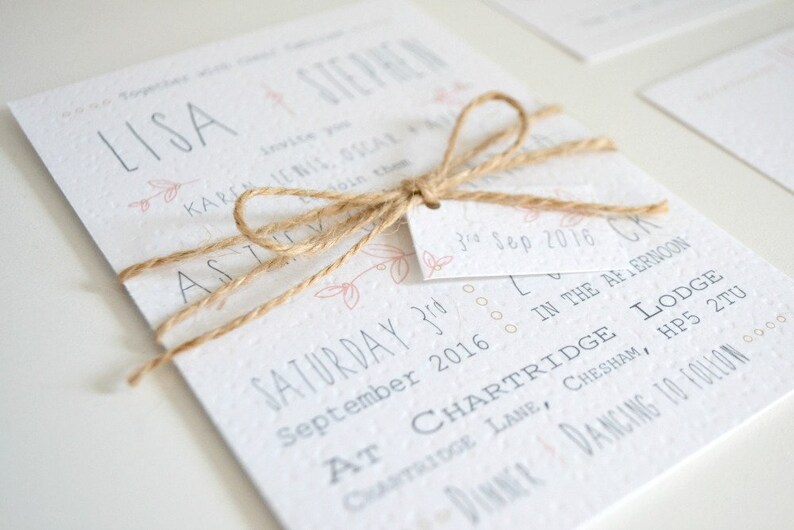 Together with their families
LISA STEPHEN
invite you
KAREN, LEWIS, OSCAR +
to join them
AS THEY
3rd Sep 2016
SATURDAY 3rd
September 2016
IN THE AFTERNOON
AT CHARTRIDGE LODGE
CHARTRIDGE LANE, CHESHAM, HP5 2TU
DINNER DANCING TO FOLLOW